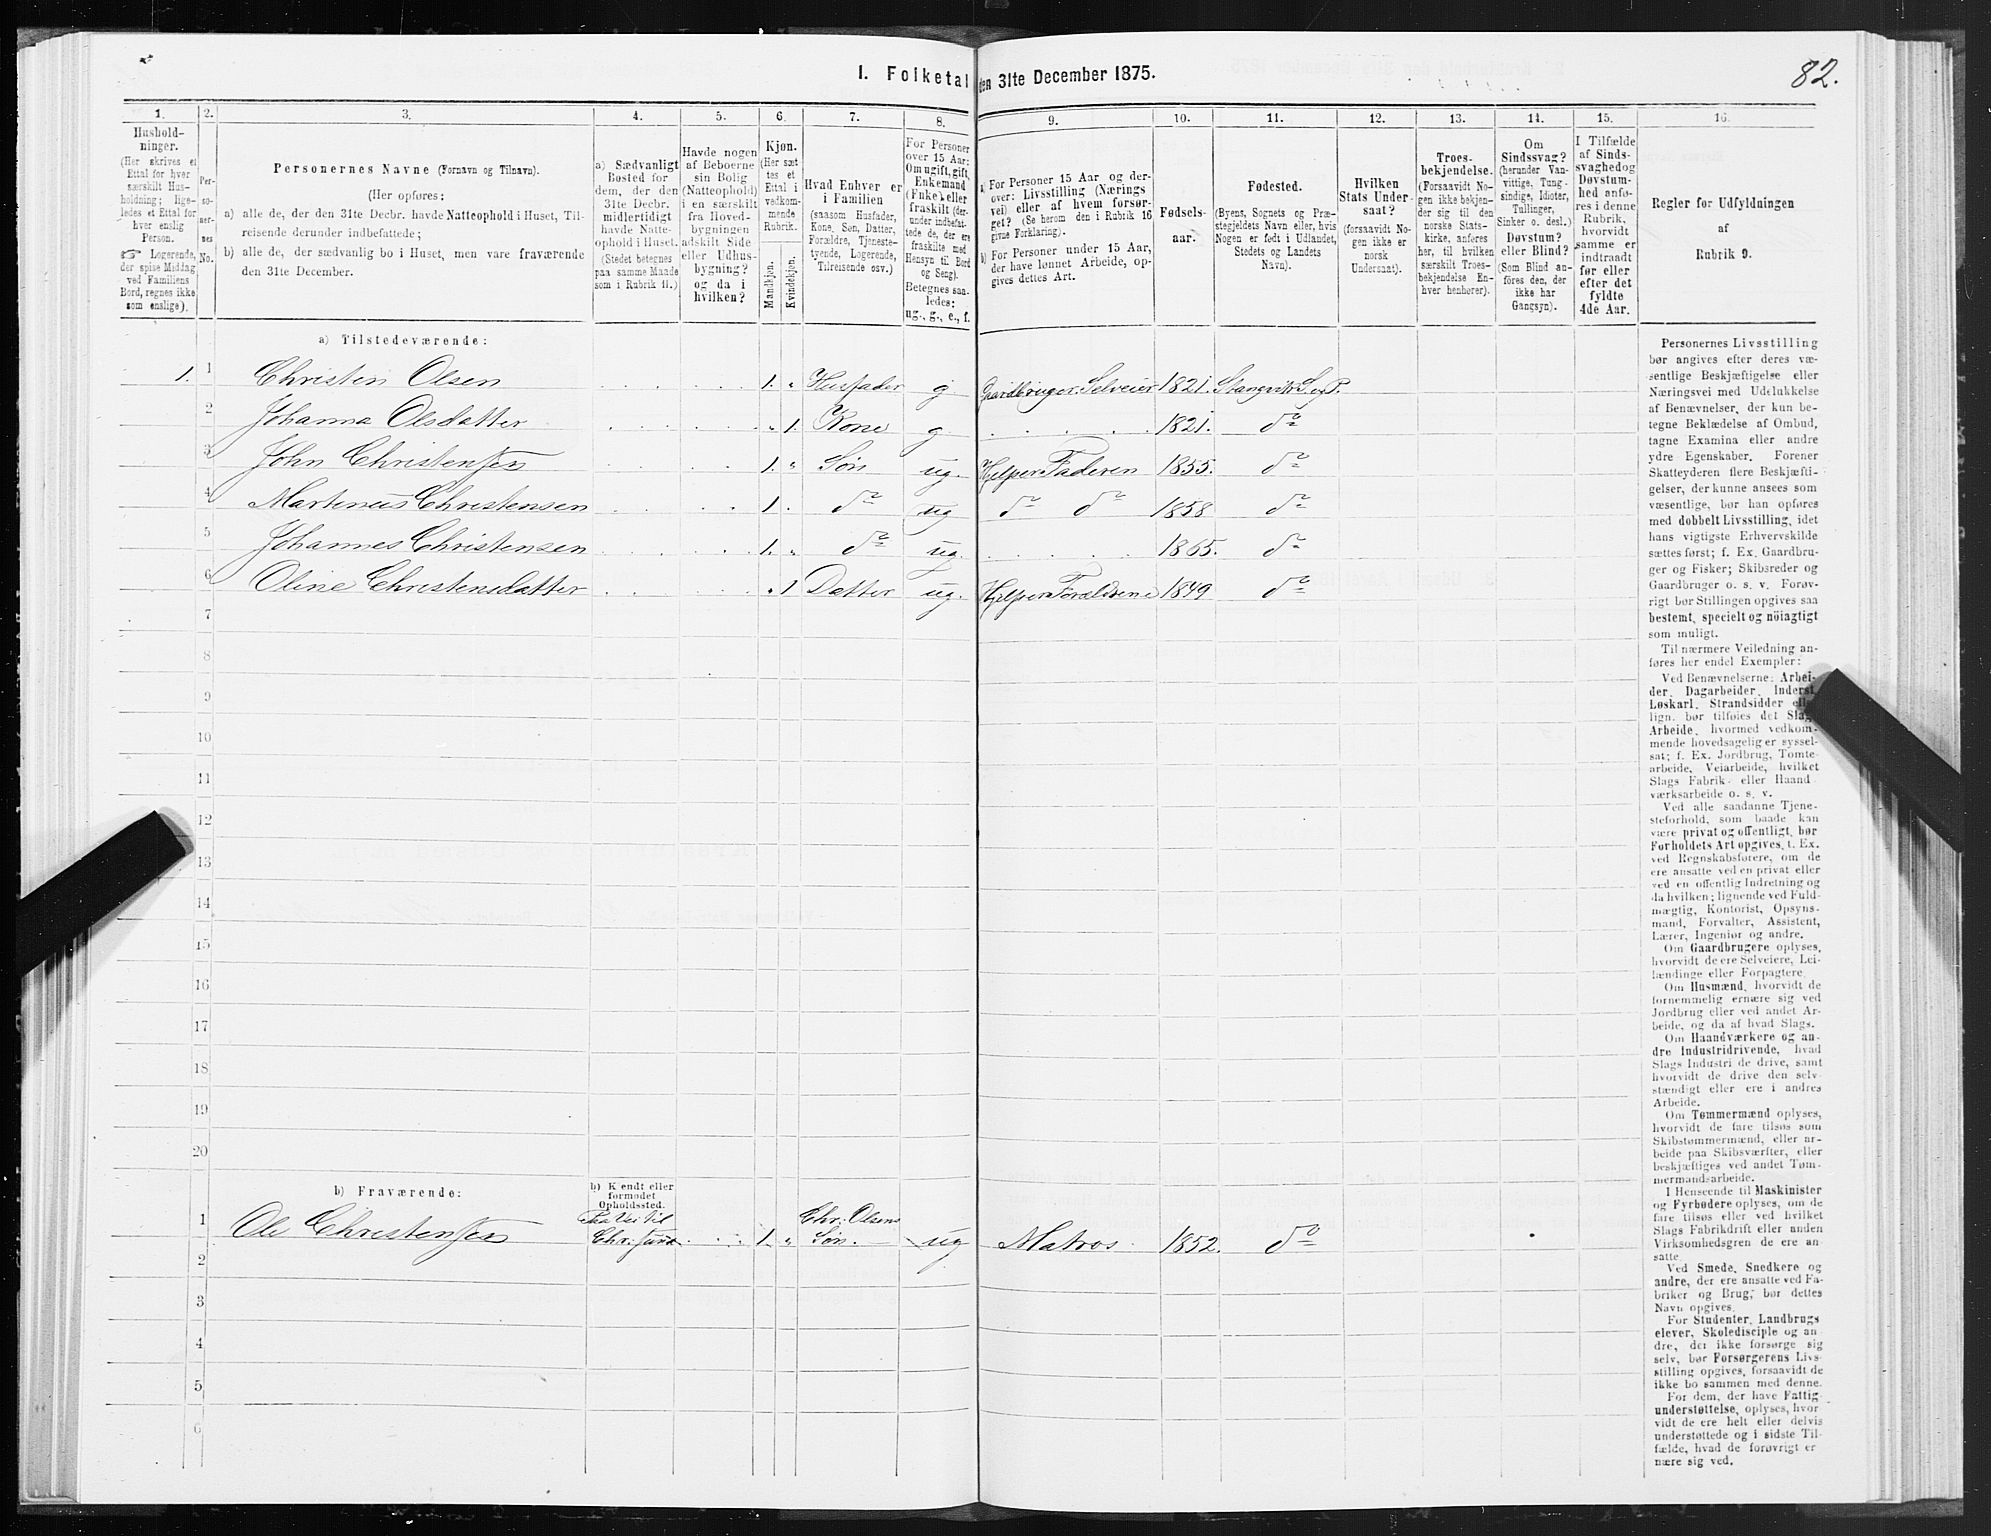 82.
I. Folketal den 31te December 1875.
1. 2. 3. 4. 5. 6. 7. 8. 9. 10. 11. 12. 13. 14. 15. 16.
Hushold-
ninger.
(Her skrives et
Ettal for hver
særskilt Hus-
holdning; lige-
ledes et Ettal for
hver enslig
Person.
☞ Logerende,
der spise Middag
ved Familiens
Bord, regnes ikke
som enslige).
Per-
so-
ner-
nes
No.
Personernes Navne (Fornavn og Tilnavn).
(Her opføres:
a) alle de, der den 31te Decbr. havde Natteophold i Huset, Til-
reisende derunder indbefattede;
b) alle de, der sædvanlig bo i Huset, men vare fraværende
den 31te December.
a) Sædvanligt
Bosted for
dem, der den
31te Decbr.
midlertidigt
havde Natte-
ophold i Huset.
(Stedet betegnes
paa samme Maade
som i Rubrik 11.)
Havde nogen
af Beboerne
sin Bolig
(Natteophold)
i en særskilt
fra Hoved-
bygningen
adskilt Side
eller Udhus-
bygning?
og da i
hvilken?
Kjøn.
(Her sæt-
tes et
Ettal i
vedkom-
mende
Rubrik.
Mandkjøn.
Kvindekjøn.
Hvad Enhver er
i Familien
(saasom Husfader,
Kone, Søn, Datter,
Forældre, Tjeneste-
tyende, Logerende,
Tilreisende osv.)
For Personer
over 15 Aar:
Om ugift, gift,
Enkemand
(Enke) eller
fraskilt (der-
under indbefat-
tede de, der ere
fraskilte med
Hensyn til Bord
og Seng).
Betegnes saa-
ledes:
ug., g., e., f.
a) For Personer 15 Aar og der-
over: Livsstilling (Nærings
vei) eller af hvem forsør-
get? (Se herom den i Rubrik 16
givne Forklaring).
b) For Personer under 15 Aar,
der have lønnet Arbeide, op-
gives dettes Art.
Fødsels-
aar.
Fødested.
(Byens, Sognets og Præ-
stegjeldets Navn eller, hvis
Nogen er født i Udlandet,
Stedets og Landets
Navn).
Hvilken
Stats Under-
saat?
(forsaavidt No-
gen ikke er
norsk
Undersaat).
Troes-
bekjendelse.
(Forsaavidt No-
gen ikke bekjen-
der sig til den
norske Stats-
kirke, anføres
her, til hvilken
særskilt Troes-
bekjendelse En-
hver henhører).
Om
Sindssvag?
(herunder Van-
vittige, Tung-
sindige, Idioter,
Tullinger,
Sinker o. desl.)
Døvstum?
eller Blind?
(Som Blind an-
føres den, der
ikke har
Gangsyn).
I Tilfælde
af Sinds-
svaghed og
Døvstum-
hed anfø-
res i denne
Rubrik,
hvorvidt
samme er
indtraadt
før eller
efter det
fyldte
4de Aar.
Regler for Udfyldningen
af
Rubrik 9.
a) Tilstedeværende:
1. 1 Christen Olsen 1. Husfader g Gaardbruger. Selveier 1821. Stangvik S. og P.
2 Johanna Olsdatter 1. Kone g 1821. do
3 John Christensen 1. Søn ug. Hjelper Faderen 1855. do
4 Martinus Christensen 1. do ug do do 1858 do
5 Johannes Christensen 1. do ug. 1865. do
6 Oline Christensdatter 1 Datter ug. Hjelper Forældrene 1849 do
7
8
9
10
11
12
13
14
15
16
17
18
19
20
b) Fraværende:
b) Kjendt eller
formodet
Opholdssted.
1 Ole Christensen Paa Vei til
Chr: sund 1. Chr: Olsens
Søn. ug Matros. 1852. do
2
3
4
5
6
Personernes Livsstilling
bør angives efter deres væ-
sentlige Beskjæftigelse eller
Næringsvei med Udelukkelse
af Benævnelser, der kun be-
tegne Beklædelse af Ombud,
tagne Examina eller andre
ydre Egenskaber. Forener
Skatteyderen flere Beskjæfti-
gelser, der kunne ansees som
væsentlige, bør han opføres
med dobbelt Livsstilling, idet
hans vigtigste Erhvervskilde
sættes først; f. Ex. Gaardbru-
ger og Fisker; Skibsreder og
Gaardbruger o. s. v. Forøv-
rigt bør Stillingen opgives saa
bestemt, specielt og nöiagtigt
som muligt.
Til nærmere Veiledning an-
føres her endel Exempler:
Ved Benævnelserne: Arbei-
der, Dagarbeider, Inderst,
Løskarl, Strandsidder
lign. bør tilføies det Slags
Arbeide, hvormed vedkom-
mende hovedsagelig er syssel-
sat; f. Ex. Jordbrug, Tomte-
arbeide, Veiarbeide, hvilket
Slags Fabrik- eller Haand-
værksarbeide o. s. v.
Ved alle saadanne Tjene-
steforhold, som baade kan
være privat og offentligt, bør
Forholdets Art opgives, f. Ex.
ved Regnskabsførere, om de
ere ansatte ved en privat eller
ved en offentlig Indretning og
da hvilken; lignende ved Fuld-
mægtig, Kontorist, Opsyns-
mand, Forvalter, Assistent,
Lærer, Ingeniør og andre.
Om Gaardbrugere oplyses,
hvorvidt de ere Selveiere, Lei-
lændinge eller Forpagtere.
Om Husmænd, hvorvidt de
fornemmelig ernære sig ved
Jordbrug eller ved andet Ar-
beide, og da af hvad Slags.
Om Haandværkere og an-
dre Industridrivende, hvad
Slags Industri de drive, samt
hvorvidt de drive den selv-
stændigt eller ere i andres
Arbeide.
Om Tømmermænd oplyses,
hvorvidt de fare tilsøs som
Skibstømmermænd, eller ar-
beide paa Skibsværfter, eller
beskjæftiges ved andet Tøm-
mermandsarbeide.
I Henseende til Maskinister
og Fyrbødere oplyses, om de
fare tilsøs eller ved hvilket
Slags Fabrikdrift eller anden
Virksomhedsgren de ere an-
satte.
Ved Smede, Snedkere og
andre, der ere ansatte ved Fa-
briker og Brug, bør dettes
Navn opgives.
For Studenter, Landbrugs-
elever, Skoledisciple og an-
dre, der ikke forsørge sig
selv, bør Forsørgerens Livs-
stilling opgives, forsaavidt de
ikke bo sammen med denne.
For dem, der have Fattig-
understøttelse, oplyses, hvor-
vidt de ere helt eller delvis
understøttede og i sidste Til-
fælde, hvad de forøvrigt er-
nære sig ved.